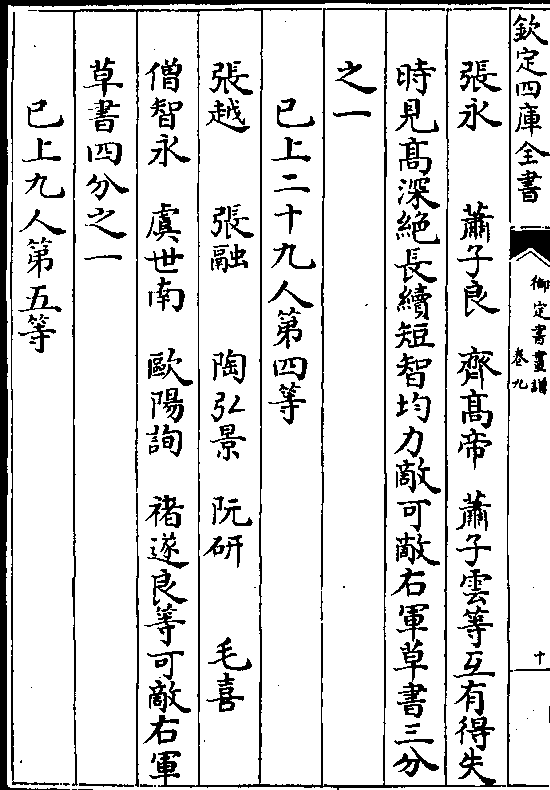 欽定四庫全書
御定書畫譜
卷九
十
張永 蕭子良 齊髙帝 蕭子雲等互有得失
時見髙深絶長續短智均力敵可敵右軍草書三分
之一
已上二十九人第四等
張越 張融 陶弘景 阮研 毛喜
僧智永 虞世南 歐陽詢 褚遂良等可敵右軍
草書四分之一
已上九人第五等